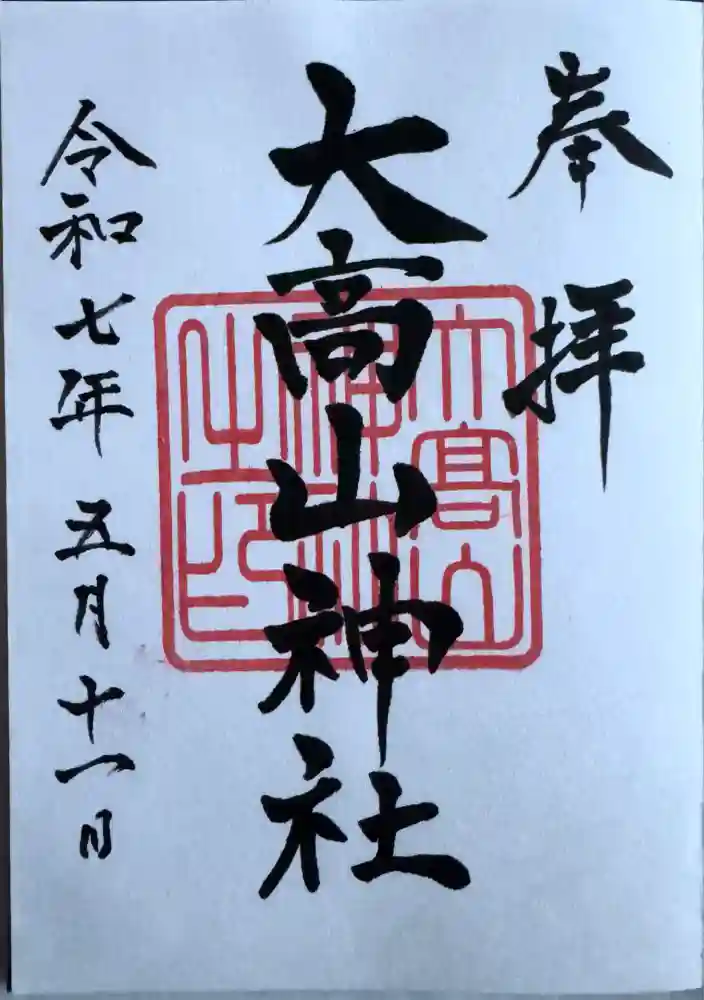 奉拝
大高山神社
大高山神社之印
令和七年五月十一日